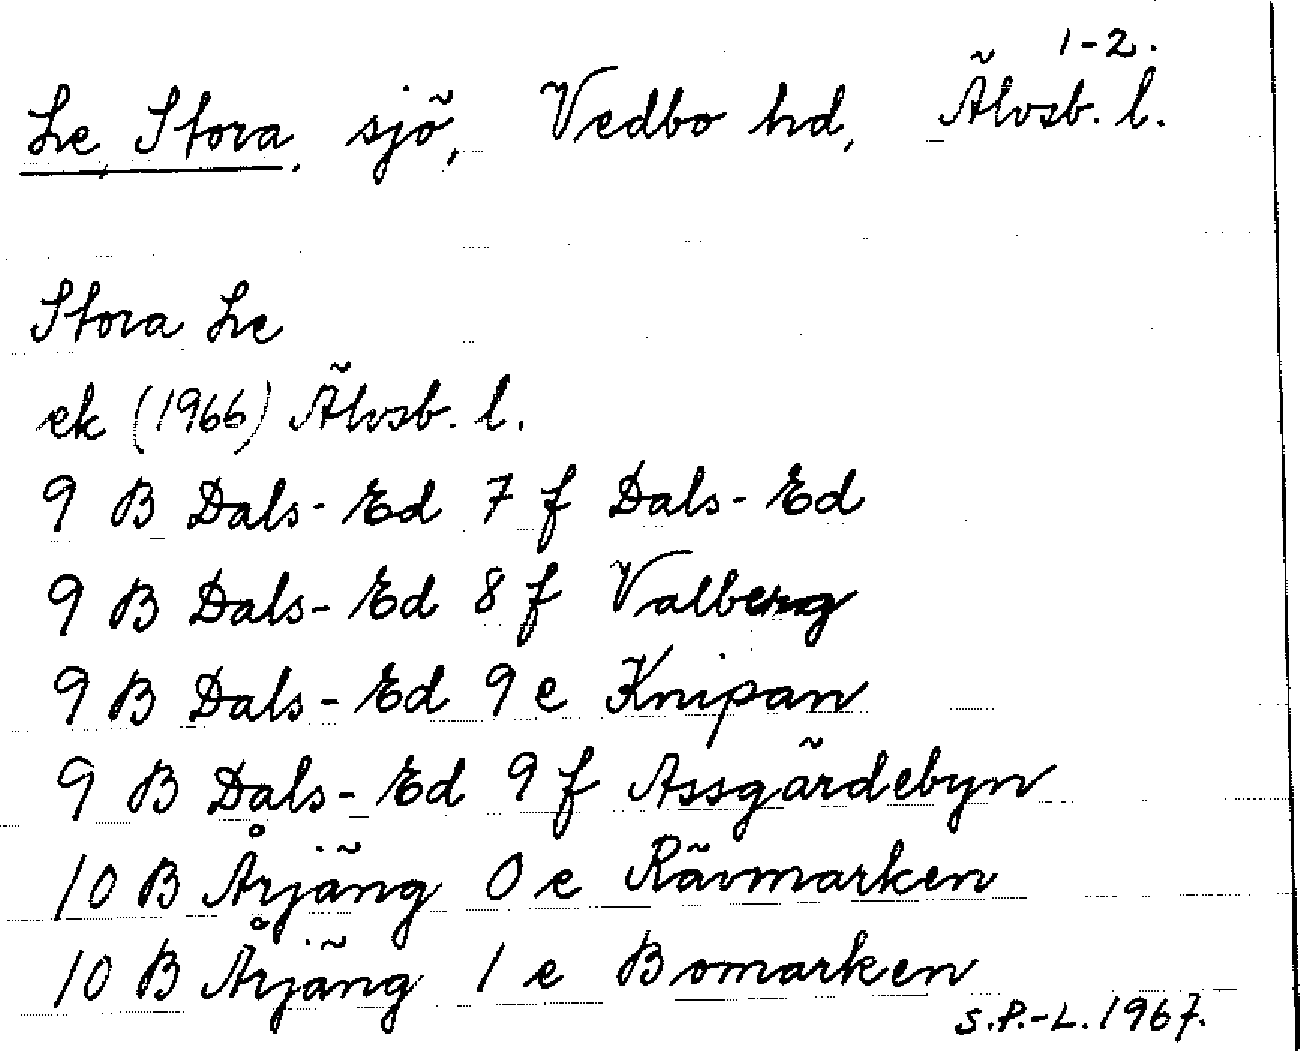 1-2.
Le, Stora, sjö, Vedbo hd, Älvsb. l.
Stora Le
ek (1966) Älvsb. l.
9 B Dals-Ed 7 f Dals-Ed
9 B Dals-Ed 8 f Valberg
9 B Dals-Ed 9 e Knipan
9 B Dals-Ed 9 f Assgärdebyn
10 B Årjäng 0 e Rävmarken
10 B Årjäng 1 e Bomarken
S.P.-L. 1967.